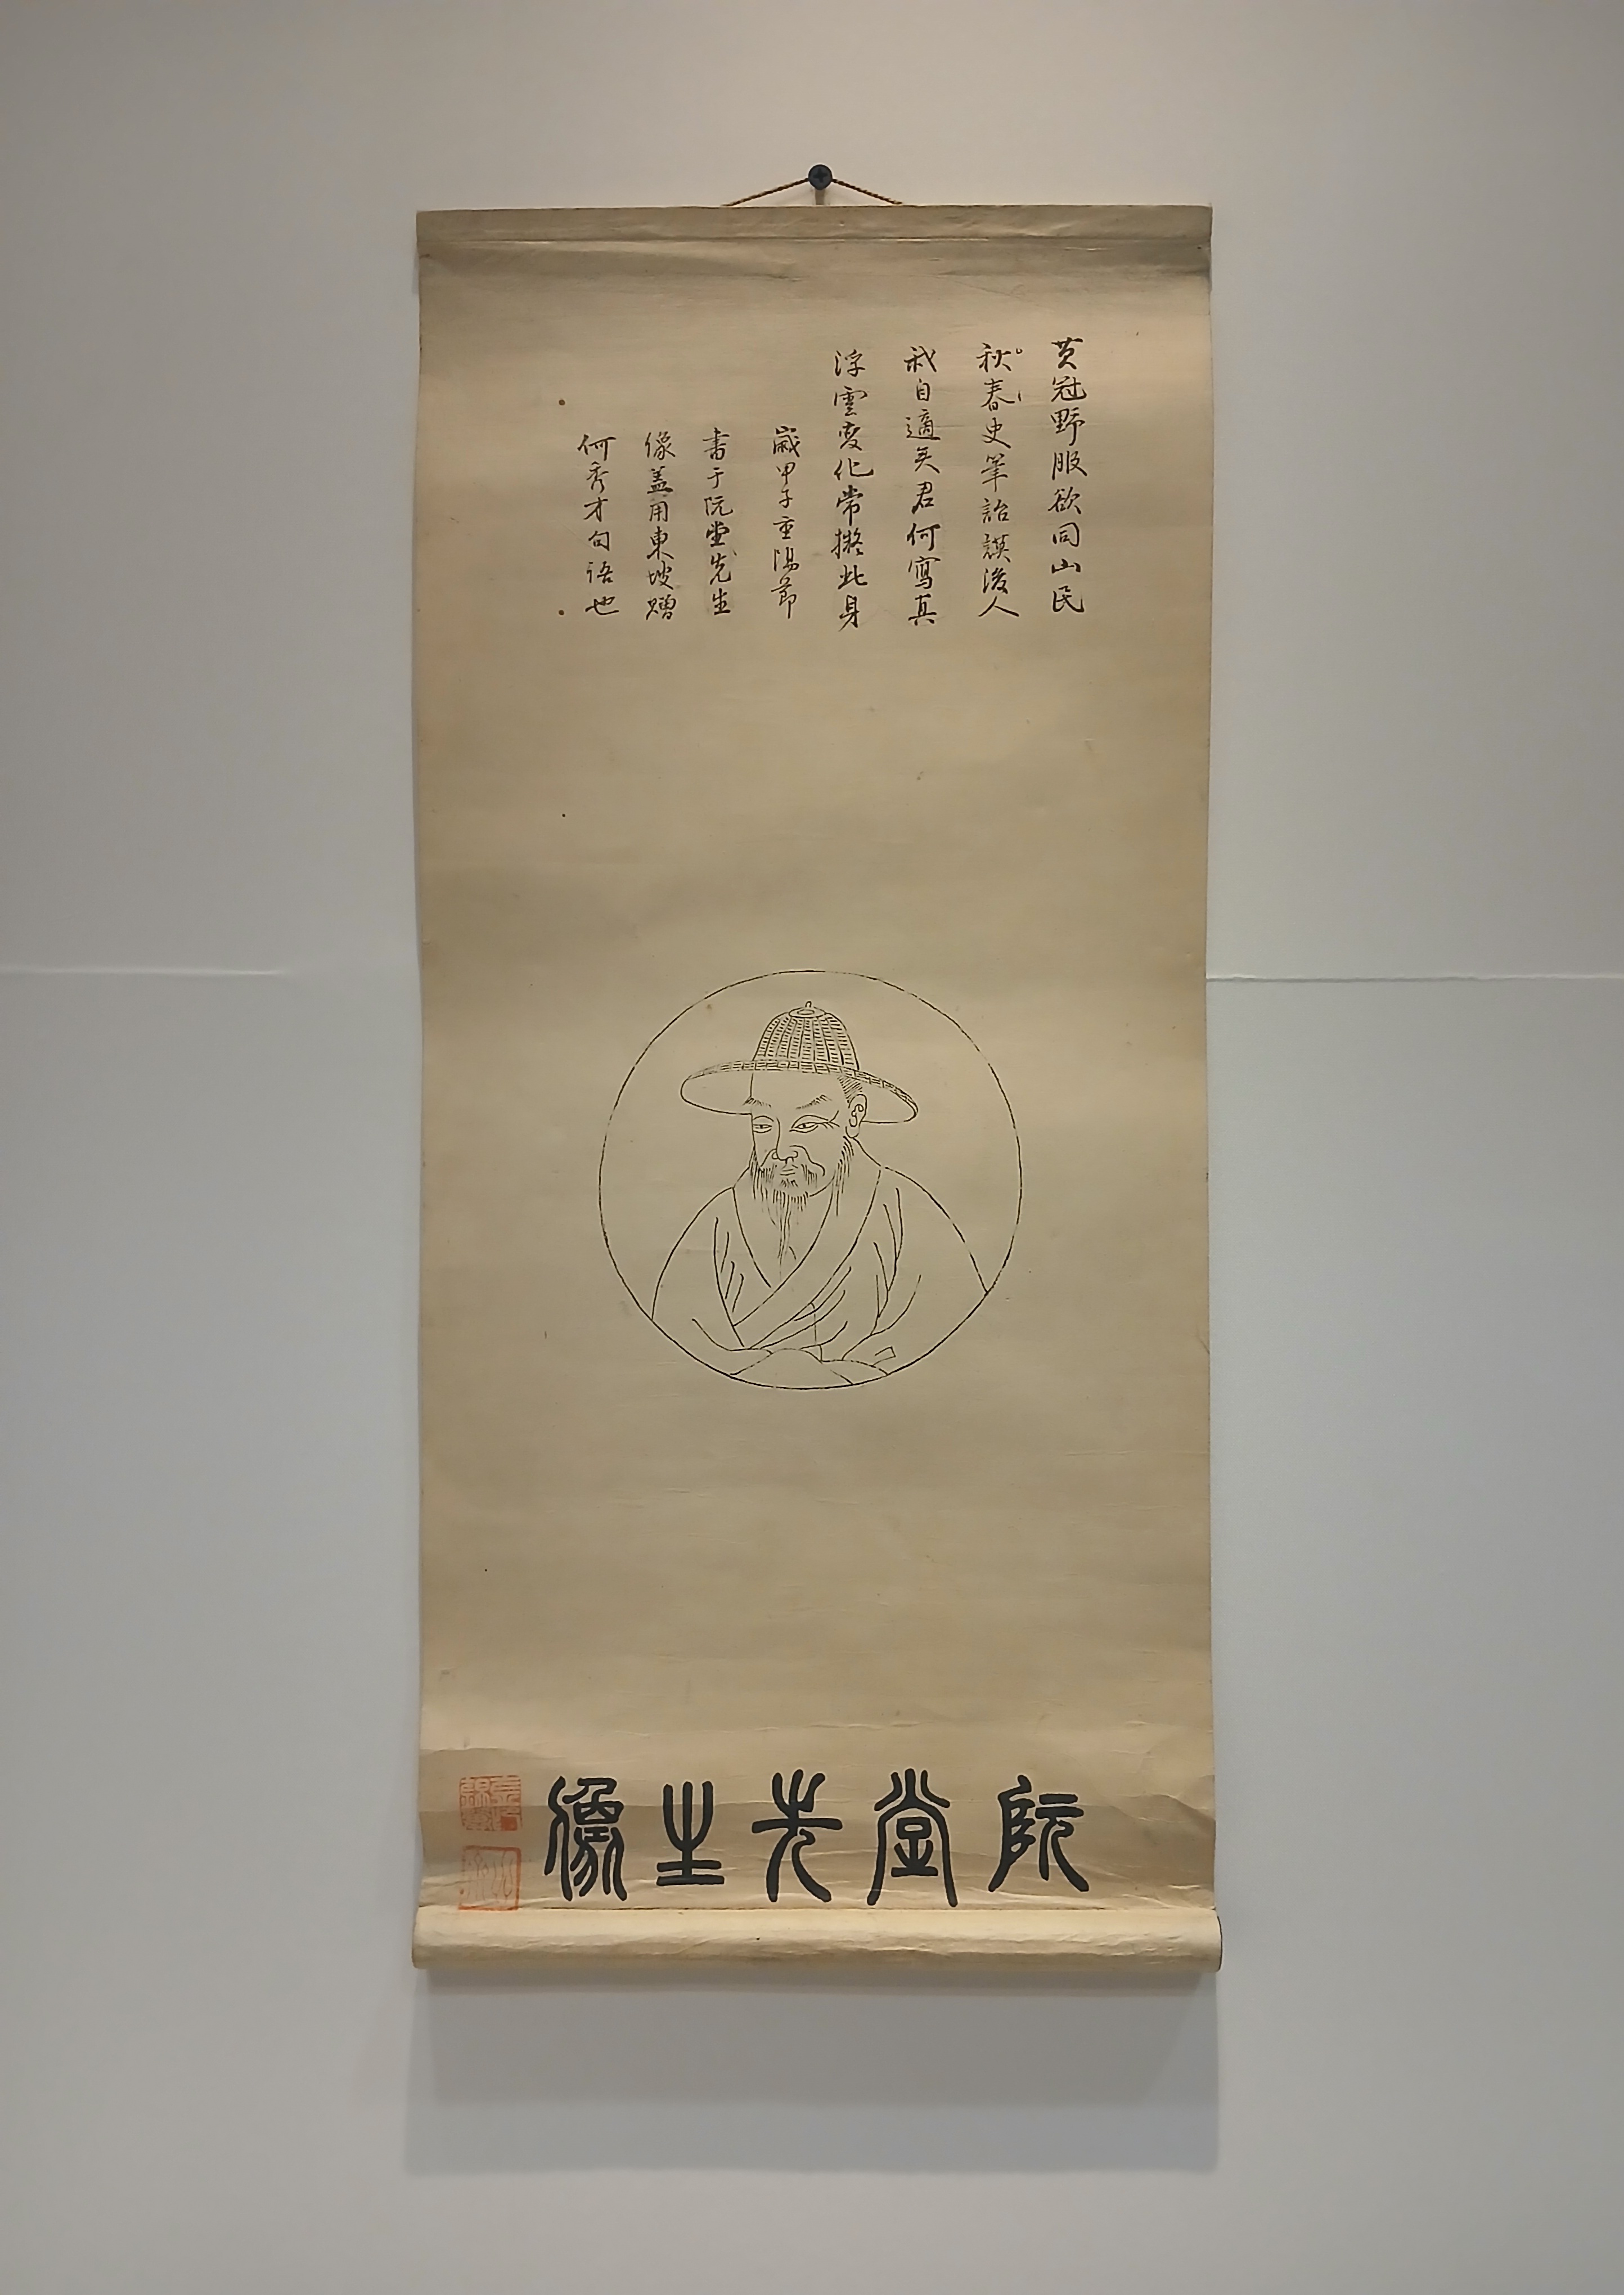 黃冠野服欲同山民
秋春史筆詒謨後人
我自適矣君何寫真
浮雲變化常擬此身
歲甲子重陽節
書于阮堂先生
像蓋用東坡贈
何秀才句語也
阮堂先生像